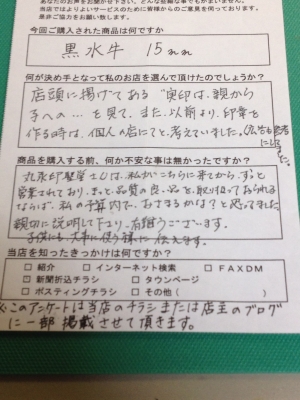 あなたのお声をお聞かせ下さい。どんな些細な事でもかまいません。
当店ではよりよいサービスのために皆様からのご意見を伺っております。
是非ご協力をお願い致します。
今回ご購入された商品は何ですか
黒水牛 15mm
何が決め手となって私のお店を選んで頂けたのでしょうか?
店頭に掲げてある“実印は、親から
子への…を見て、また、以前より、印章を
作る時は、個人の店にてと、考えていました。(広告も参考
にしました。
商品を購入する前、何か不安な事は無かったですか?
丸永印房堂さんは、私がこちらに来てから、ずっと
営業されており、きっと、品質の良い品を、取扱っておられる
ならば、私の予算内で、おさまるかな?と思ってました。
親切に説明して下さり、有難うございます。
子供にも、大事に使う様に伝えます。
当店を知ったきっかけは何ですか?
□ 紹介 □ インターネット検索 □ FAXDM
□ 新聞折込チラシ □ タウンページ
□ ポスティングチラシ □ その他( )
※このアンケートは当店のチラシまたは店主のブログ
に一部掲載させて頂きます。